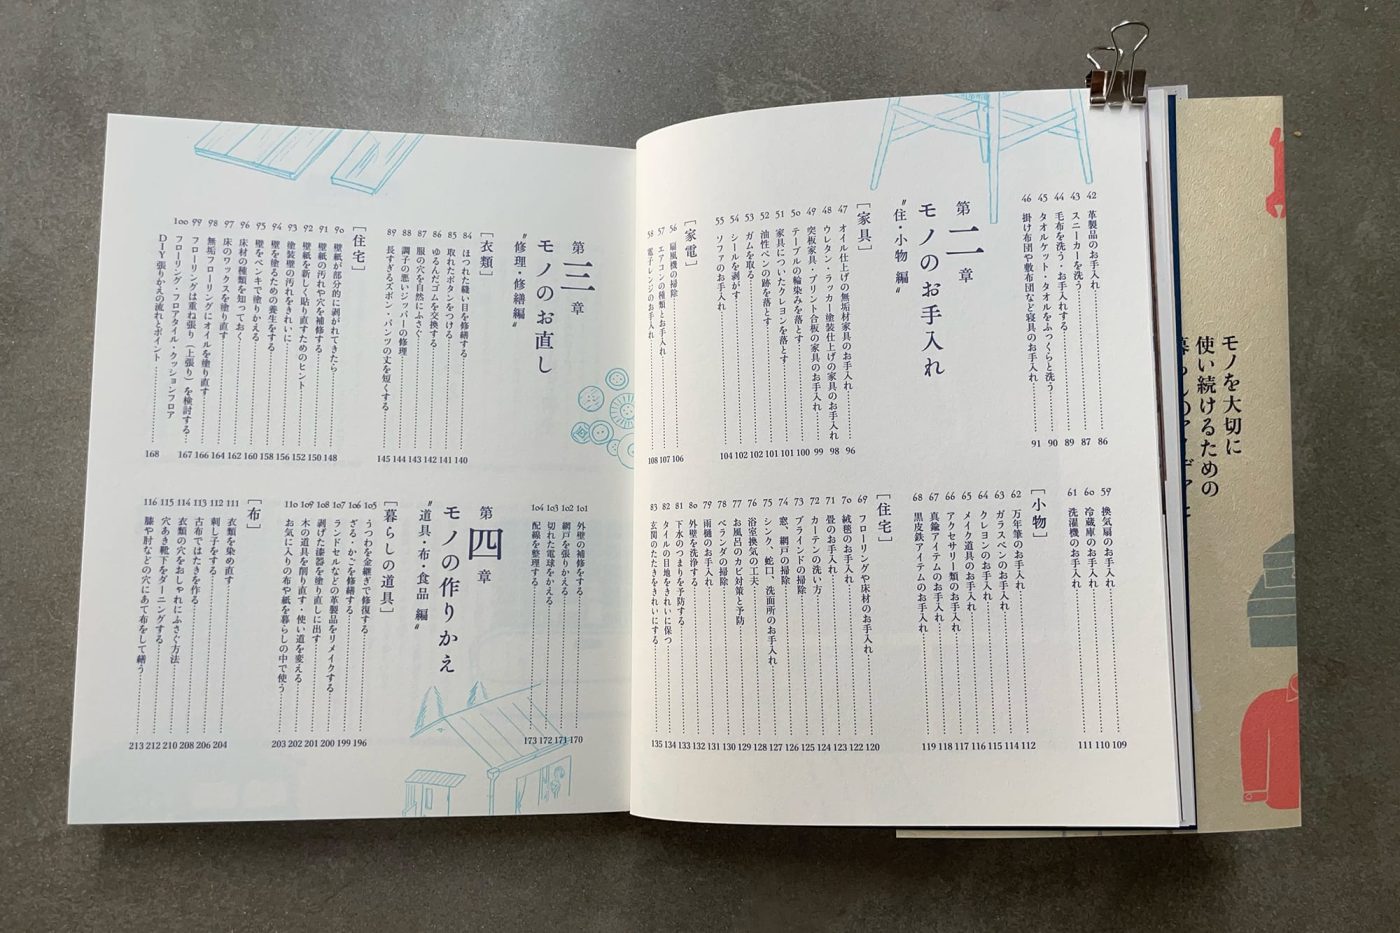 42 革製品のお手入れ 86
43 スニーカーを洗う 87
44 毛布を洗う・お手入れする 89
45 タオルケット・タオルをふっくらと洗う 90
46 掛け布団や敷布団など寝具のお手入れ 91
第二章
モノのお手入れ
〝住・小物 編〟
［家具］
47 オイル仕上げの無垢材家具のお手入れ 96
48 ウレタン・ラッカー塗装仕上げの家具のお手入れ 98
49 突板家具・プリント合板の家具のお手入れ 99
50 テーブルの輪染みを落とす 100
51 家具についたクレヨンを落とす 101
52 油性ペンの跡を落とす 101
53 ガムを取る 102
54 シールを剥がす 102
55 ソファのお手入れ 104
［家電］
56 扇風機の掃除 106
57 エアコンの種類とお手入れ 107
58 電子レンジのお手入れ 108
59 換気扇のお手入れ 109
60 冷蔵庫のお手入れ 110
61 洗濯機のお手入れ 111
［小物］
62 万年筆のお手入れ 112
63 ガラスペンのお手入れ 114
64 クレヨンのお手入れ 115
65 メイク道具のお手入れ 116
66 アクセサリー類のお手入れ 117
67 真鍮アイテムのお手入れ 118
68 黒皮鉄アイテムのお手入れ 119
［住宅］
69 フローリングや床材のお手入れ 120
70 絨毯のお手入れ 122
71 畳のお手入れ 123
72 カーテンの洗い方 124
73 ブラインドの掃除 125
74 窓、網戸の掃除 126
75 シンク、蛇口、洗面所のお手入れ 127
76 浴室換気の工夫 128
77 お風呂のカビ対策と予防 129
78 ベランダの掃除 130
79 雨樋のお手入れ 131
80 外壁を洗浄する 132
81 下水のつまりを予防する 133
82 タイルの目地をきれいに保つ 134
83 玄関のたたきをきれいにする 135
第三章
モノのお直し
〝修理・修繕編〟
［衣類］
84 ほつれた縫い目を修繕する 140
85 取れたボタンをつける 141
86 ゆるんだゴムを交換する 142
87 服の穴を自然にふさぐ 143
88 調子の悪いジッパーの修理 144
89 長すぎるズボン・パンツの丈を短くする 145
［住宅］
90 壁紙が部分的に剥がれてきたら 148
91 壁紙の汚れや穴を補修する 150
92 壁紙を新しく貼り直すためのヒント 152
93 塗装壁の汚れをきれいに 156
94 壁を塗るための養生をする 158
95 壁をペンキで塗りかえる 160
96 床材の種類を知っておく 162
97 床のワックスを塗り直す 164
98 無垢フローリングにオイルを塗り直す 166
99 フローリングは重ね張り（上張り）を検討する 167
100 フローリング・フロアタイル・クッションフロア
DIY張りかえの流れとポイント 168
101 外壁の補修をする 170
102 網戸を張りかえる 171
103 切れた電球をかえる 172
104 配線を整理する 173
第四章
モノの作りかえ
〝道具・布・食品 編〟
［暮らしの道具］
105 うつわを金継ぎで修復する 196
106 ざる・かごを修繕する 199
107 ランドセルなどの革製品をリメイクする 200
108 剥げた漆器を塗り直しに出す 201
109 木の道具を削り直す・使い道を変える 202
110 お気に入りの布や紙を暮らしの中で使う 203
［布］
111 衣類を染め直す 204
112 刺し子をする 206
113 古布ではたきを作る 208
114 衣類の穴をおしゃれにふさぐ方法 210
115 穴あき靴下をダーニングする 212
116 膝や肘などの穴にあて布をして繕う 213
モノを大切に
使い続けるための